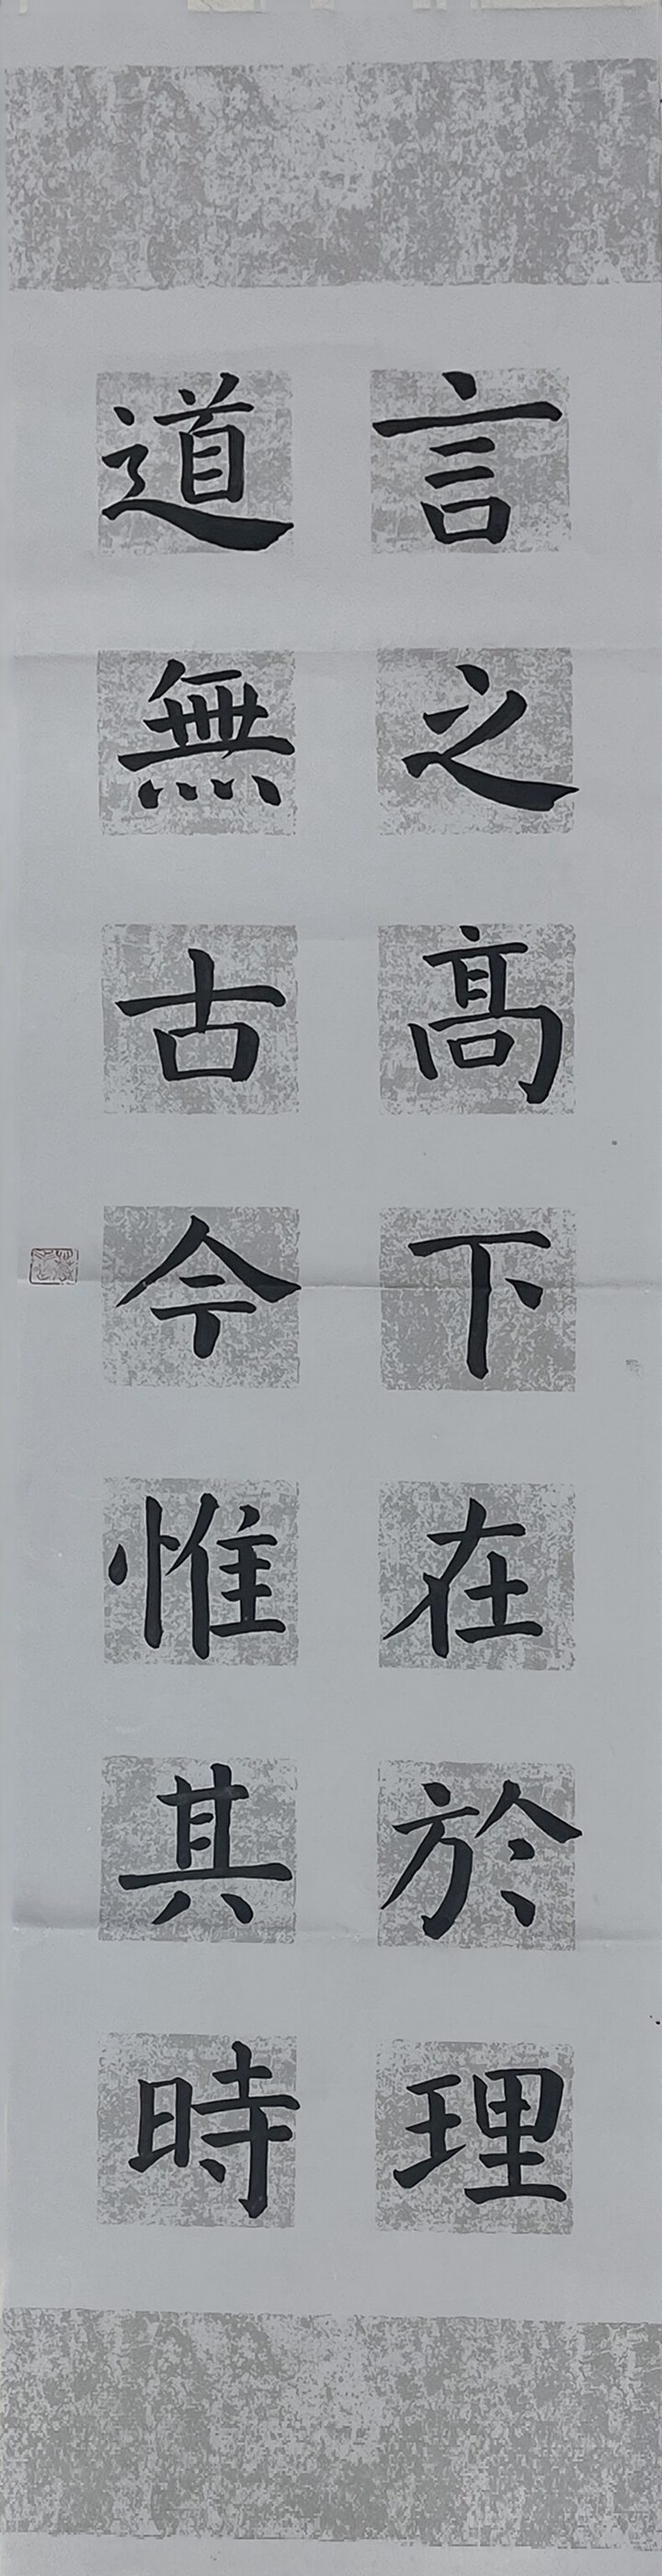 言之髙下在於理
道無古今惟其時